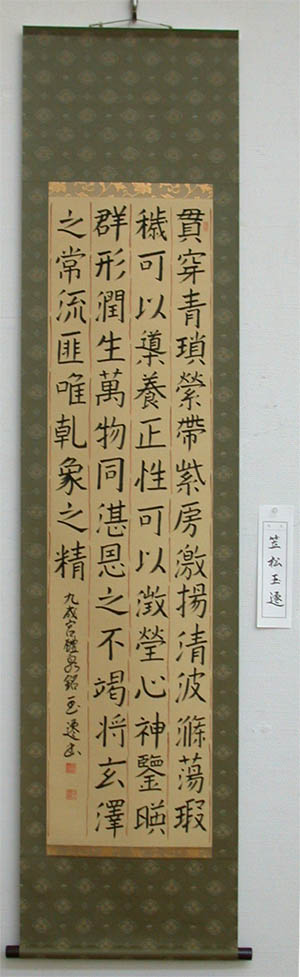 貫穿青瑣縈帶紫房激揚清波滌蕩瑕
穢可以導養正性可以澂瑩心神鑒暎
群形潤生萬物同湛恩之不竭将玄澤
之常流匪唯乹象之精
九成宮醴泉銘 玉
笠松玉